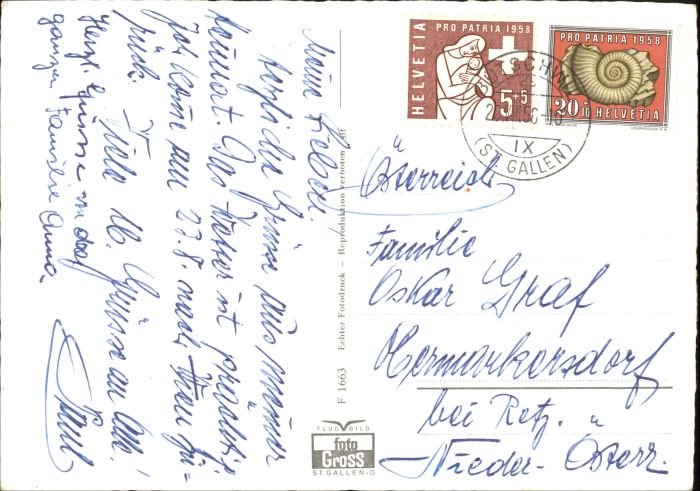 Meine Lieben!
Herzliche Grüsse aus meiner
Heimat. Das Wetter ist prächtig.
Ich komme am 23.8. nach Wien zu=
rück. Viele lb. Grüsse an alle!
Herzl. Grüsse von der
ganzen Familie Anna
HELVETIA
PRO PATRIA 1958
5+5
PRO PATRIA 1958
20+10 HELVETIA
COURVOISIER S.A.
IX
(ST. GALLEN)
Österreich
Familie
Oskar Graf
Hermarkersdorf
bei Retz.
Nieder-Österr.
F 1663 Echter Fotodruck - Reproduktion verboten
FLUGBILD
foto
Gross
ST. GALLEN-O